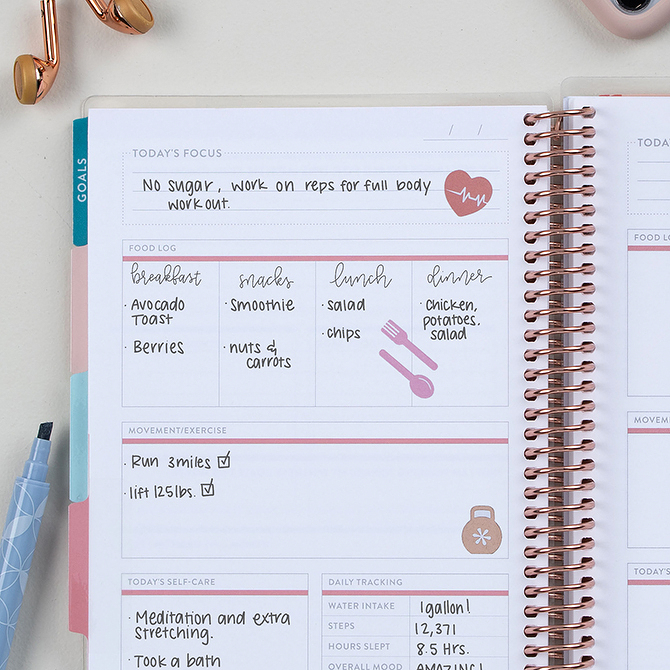 GOALS
/ /
TODAY'S FOCUS
No sugar, work on reps for full body
workout.
FOOD LOG
breakfast
snacks
lunch
dinner
· Avocado
Toast
· Berries
· Smoothie
· nuts &
carrots
· salad
· chips
· Chicken,
potatoes.
salad
MOVEMENT/EXERCISE
· Run 3miles ☑
· lift 125lbs. ☑
TODAY'S SELF-CARE
· Meditation and extra
stretching.
· Took a bath
DAILY TRACKING
WATER INTAKE 1gallon!
STEPS 12,371
HOURS SLEPT 8.5 Hrs.
OVERALL MOOD AMAZING!
TODA
FOOD LO
MOVEM
TODAY'S